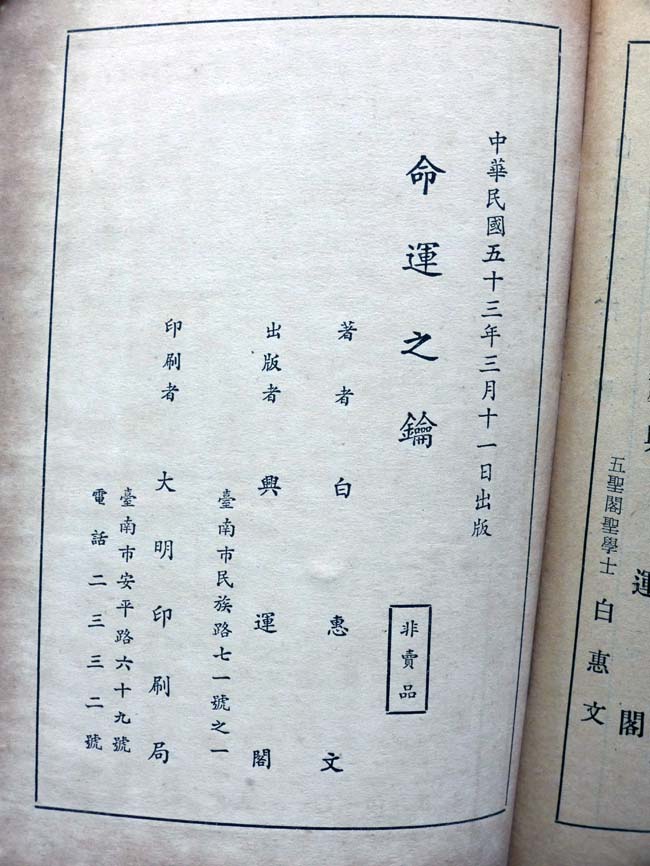 五聖閣聖學士 白惠文
運閣
中華民國五十三年三月十一日出版
命運之鑰
非賣品
著者 白惠文
出版者 興運閣
臺南市民族路七一號之一
印刷者 大明印刷局
臺南市安平路六十九號
電話二三三二號